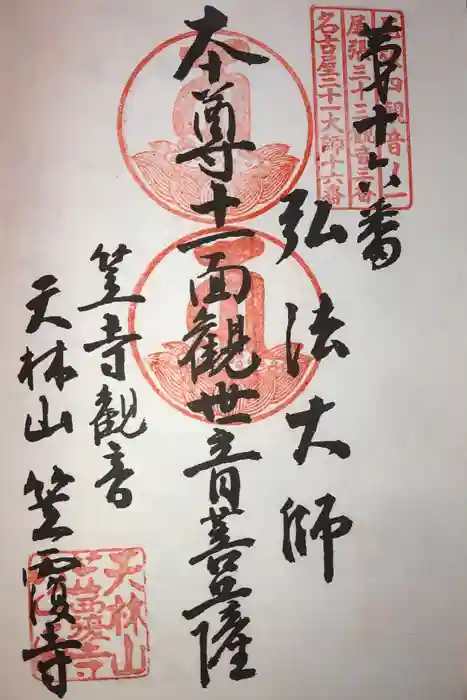 第十六番
弘法大師
本尊十一面観世音菩薩
笠寺観音
天林山 笠覆寺
尾張三十三観音三番
名古屋二十一大師十六番
天林山